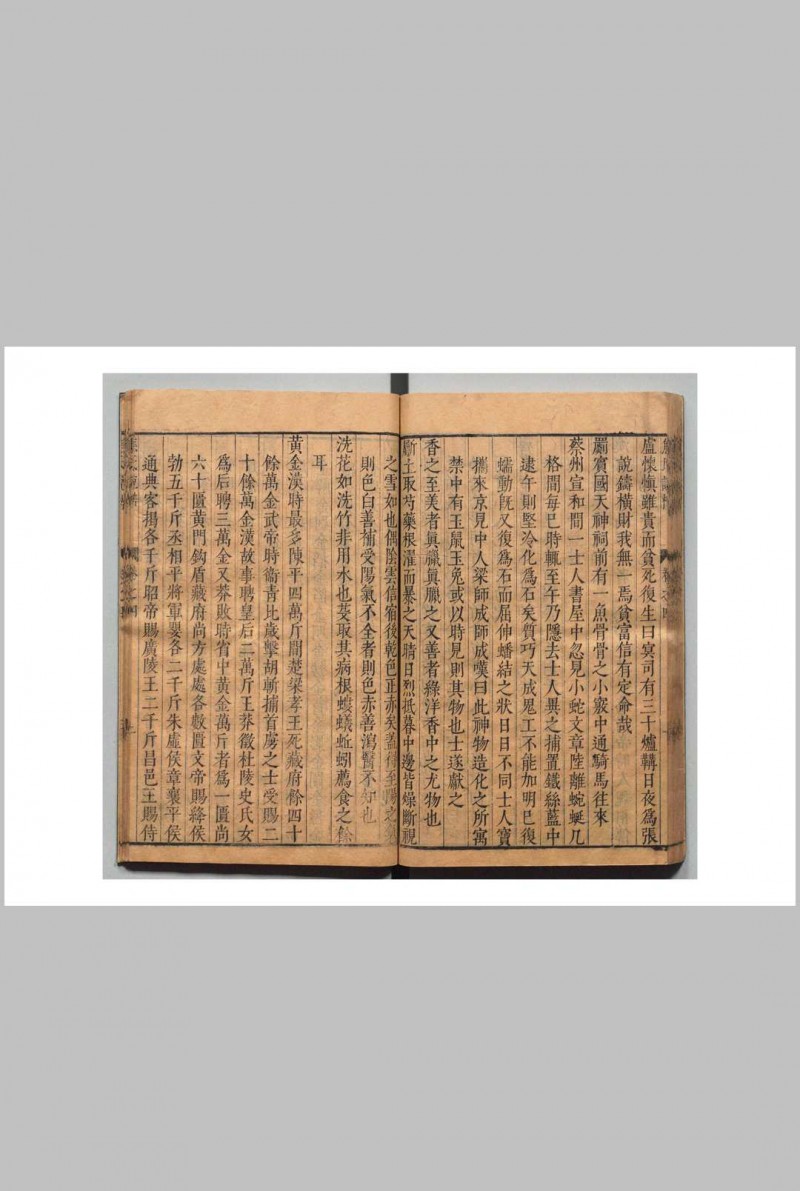 盧懷愼雖貴而貧死復生曰冥司有三十爐鞲日夜爲張
說鑄橫財我無一焉貧富信有定命哉
罽賓國天神祠前有一魚骨骨之小竅中通騎馬往來
蔡州宣和間一士人書屋中忽見小蛇文章陸離蜿蜒几
格間每巳時輒至午乃隱去士人異之捕置鐵絲藍中
逮午則堅冷化爲石矣質巧天成鬼工不能加明巳復
蠕動旣又復爲石而屈伸蟠結之狀日日不同士人寶
攜來京見中人梁師成師成嘆曰此神物造化之所寓
禁中有玉鼠玉兔或以時見則其物也士遂獻之
香之至美者眞臘眞臘之又善者綠洋香中之尤物也
斷土取芍藥根濯而暴之天晴日烈抵暮中邊皆燥斷視
之雪如也偶陰雲信宿後乾色正赤矣蓋得至陽之
則色白善補受陽氣不全者則色赤善瀉醫不知也
洗花如洗竹非用水也芟取其病根螻蟻蚯蚓薦食之餘
耳
黃金漢時最多陳平四萬斤間楚梁孝王死藏府餘四十
餘萬金武帝時衞青比歲擊胡斬捕首虜之士受賜二
十餘萬金漢故事聘皇后二萬斤王莽徵杜陵史氏女
爲后聘三萬金又莽敗時省中黃金萬斤者爲一匱尚
六十匱黃門鈎盾藏府尚方處處各數匱文帝賜絳侯
勃五千斤丞相平將軍嬰各二千斤朱虛侯章襄平侯
通典客揭各千斤昭帝賜廣陵王二千斤昌邑王賜侍